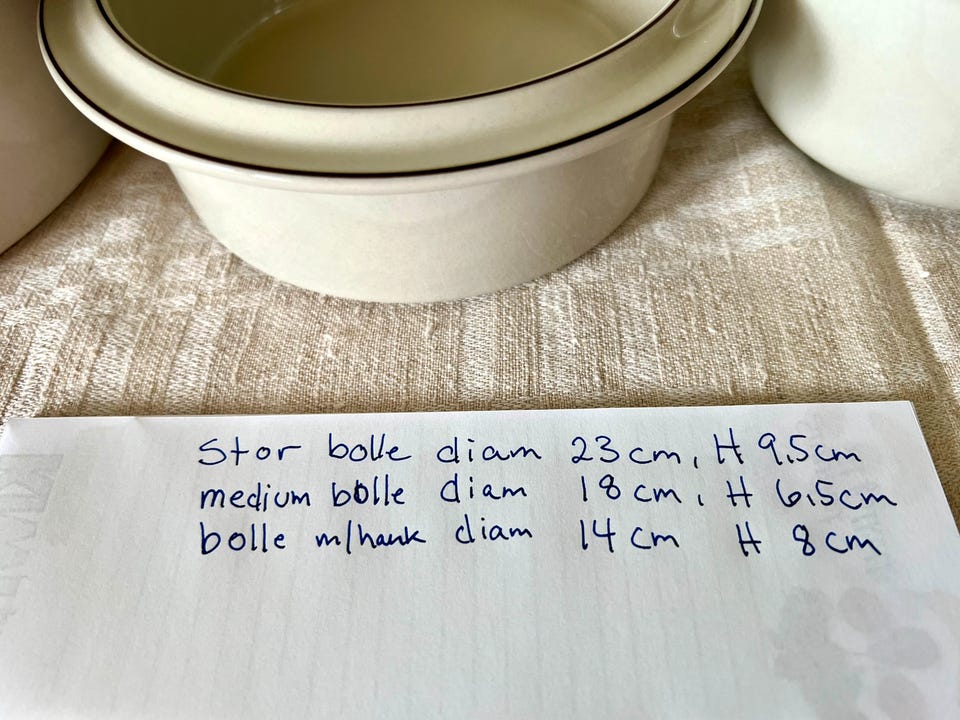 Stor bolle diam 23 cm, H 9,5 cm
medium bolle diam 18 cm, H 6,5 cm
bolle m/hank diam 14 cm H 8 cm